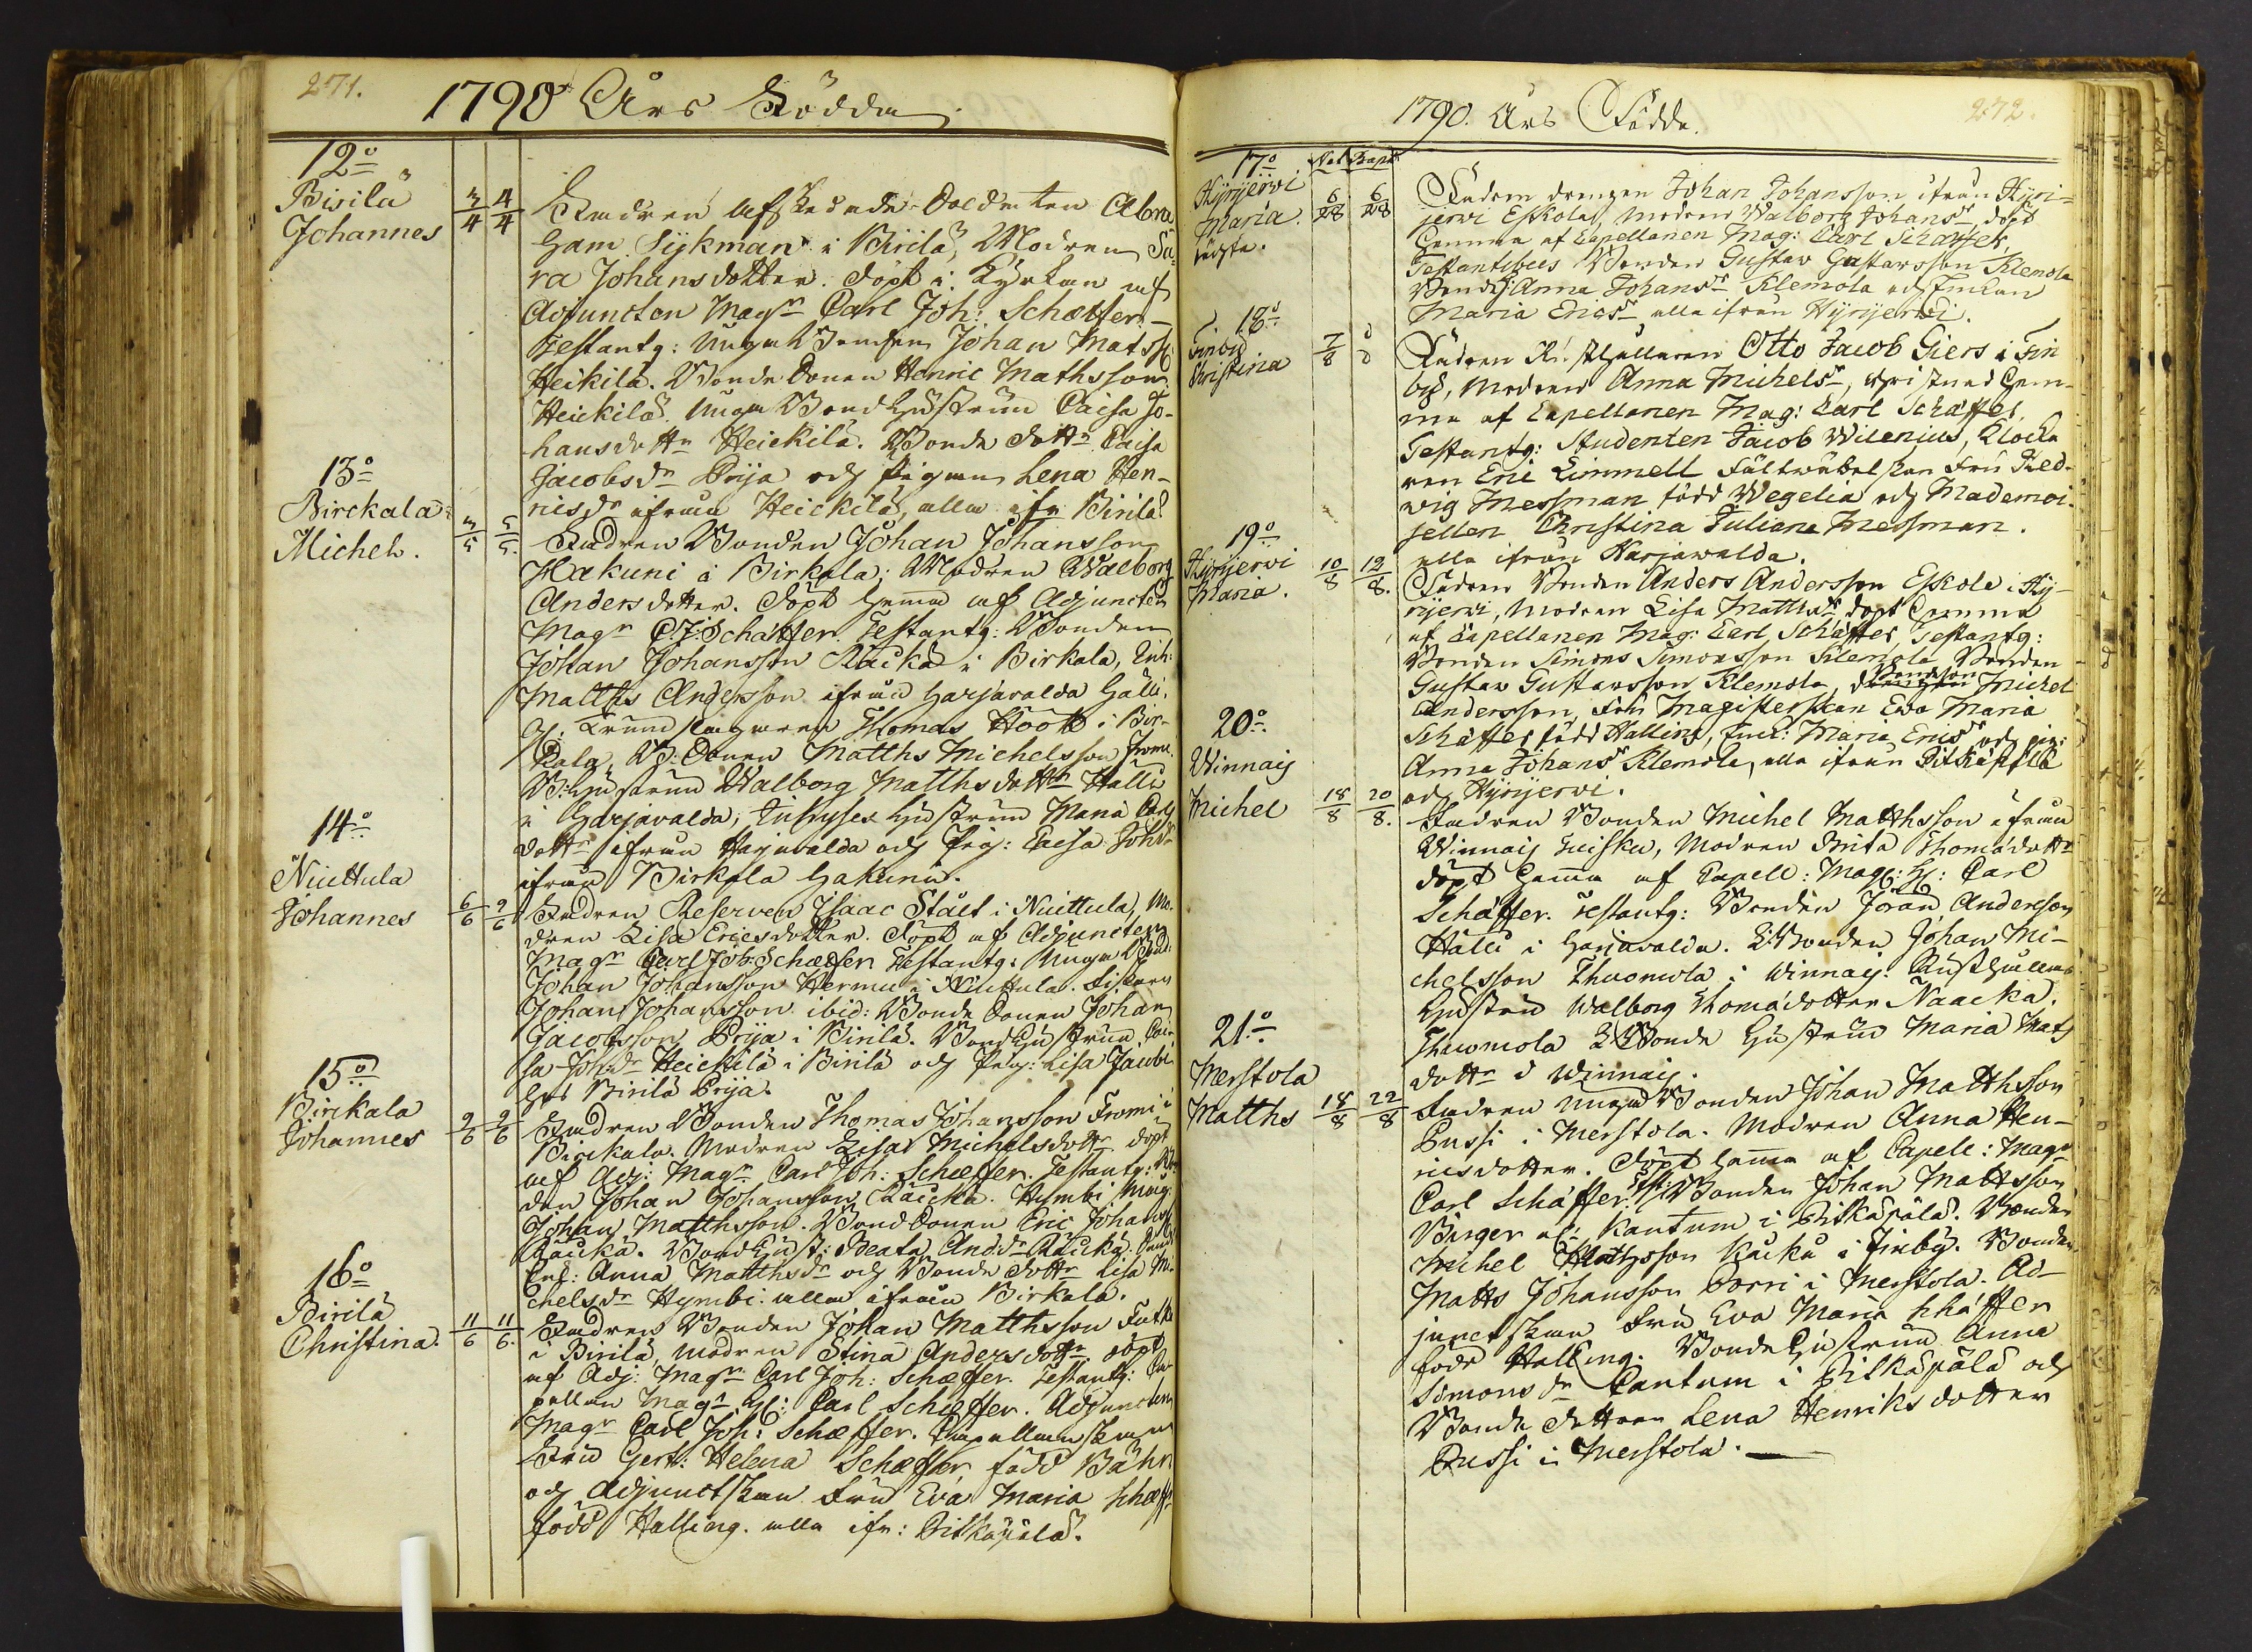 271.
1790 Års Födde
12º
Birilä
Johannes
3/4 4/4
Fadren afskedade Soldaten Abra
ham Sijkman i Birilä, Modren Sa-
ra Johansdotter. Döpt i Kyrkan af
Adjuncten Magr Carl Joh: Schæffer.
Testantg: unga Bonden Johan Matss:
Heikilä. Bonde Sonen Henric Mathsson
Heickilä. unga Bond Hustrun Caisa Jo-
hansdottr Heickilä. Bonde dottr Caisa
Jacobsdr Prija och Pigan Lena Hen-
ricsdr ifrån Heickilä, alla ifr Birilä.
13º
Birckala
Michel.
3/5 5/5.
Fadren Bonden Johan Johansson
Hakuni i Birkala; Modren Walborg
Anders dotter. Döpt hema af Adjuncten
Magr C: J: Schäffer. Testantg: Bonden
Johan Johansson Räckä i Birkala, Enk:
Matths Andersson ifrån Harjavalda Hälli.
Thomas Höök i Bir-
kala, B: Sonen Matths Michelsson Fromi
B: Hustrun Walborg Matthsdottr Hälli
i Harjavalda, Hustrun Maria Carls
dottr ifrån Harjavalda och Pig: Caisa Johdr
ifrån Birkala Hakuni.
14º
Niuttula
Johannes
6/6 9/6
Fadren Reserven Isaac Stålt i Niuttula, Mo-
dren Lisa Ericsdotter. Döpt af Adjuncten
Magr Carl Joh: Schæffer Testantg: Unga Bond:
Johan Johansson Hermu i Niuttula.
Johan Johansson ibid: Bonde Sonen Johan
Jacobsson Prija i Birilä. Bond Hustrun Cai-
sa Johdr Heickilä i Birilä och Pig: Lisa Jacobs
Birilä Prija.
15º
Birckala
Johannes
9/6 9/6
Fadren Bonden Thomas Johansson Fromi i
Birckala. Modren Lisa Michelsdottr döpt
af Adj: Magr Carl Joh: Schæffer. Testantg: Bon
den Johan Johansson Räickä. Hymbi Måg:
Johan Matthsson. Bond Sonen Eric Johanss:
Räickä. Bond Hust: Beata Andsdr Räickä.
Anna Matthsdr och Bonde dottr Lisa Mi-
chelsdr Hymbi. alla ifrån Birkala.
16º
Birilä
Christina.
11/6 11/6.
Fadren Bonden Johan Matthsson
i Birilä, modren Stina Andersdottr döpt
af Adj: Magr Carl Joh: Schæffer. Testantg: Ca-
pellan Magr H: Carl Schæffer. Adjuncten
Magr Carl Joh: Schæffer. Capellanskan
Fru Gert: Helena Schæffer född Bähr
och Adjunctskan Fru Eva Maria Schæff:
född Halling. alla ifr: Pitkäpälä.
272.
1790. Års Födde.
Nat Bapt
17º
Hyrijerwi
Maria
oägta.
6/28 6/28
Fadren drengen Johan Johansson ifrån Hyri-
jerwi Eskola, modren Walborg Johansdr, döpt
hemma af Capellanen Mag: Carl Schäffer,
Testantibus Bonden Gustav Gustavsson Klemola
Bondh: Anna Johansdr Klemola och Enkan
Maria Ericsdr alla ifrån Hyrijerwi.
18º
Finby
Christina
7/8 d/o
Fadren Rusthållaren Otto Jacob Giers i Fin
by, Modren Anna Michelsdr, christnad hem-
ma af Capellanen Mag: Carl Schäffer.
Testantg: Studenten Jacob Wilenius, Klocka
ren Eric Limnell Fältwäbelskan Fru Hed-
wig Messman född Wegelia och Mademoi-
sellen Christina Juliana Messman.
alla ifrån Harjawalda.
19º
Hyrijerwi
Maria.
10/8 12/8.
Fadren Bonden Anders Andersson Eskola i Hy-
rijerwi, Modren Lisa Matthsdr döpt hemma
af Capellanen Mag: Carl Schäffer, Testantg:
Bonden Simons Simonsson Klemola Bonden
Gustav Gustavsson Klemola, Bondson Michel
Andersson, Fru Magisterskan Eva Maria
Schäffer född Halling, Enk: Maria Ericsdr och pig:
Anna Johansdr Klemola, alla ifrån Pitkäpälä
och Hyrijerwi.
20º
Winnaij
Michel
18/8 20/8.
Fadren Bonden Michel Matthsson ifrån
Winnaij Huisku, Modren Brita Thomædottr
döpt hema af Capell: Mag: H: Carl
Schäffer. Testantg: Bonden Jöran Andersson
Hälli i Harjavalda. Bonden Johan Mi-
chelsson Thuomola i Winnaij. Rusthållar
Hustru Walborg Thomædotter Naacka.
Thuomola Bonde Hustrun Maria Mats
dottr i Winnaij.
21º
Merstola
Matths
18/8 22/8
Fadren unga Bonden Johan Matthsson
Pussi i Merstola. Modren Anna Hen-
ricsdotter. Döpt hema af Capell: Magr
Carl Schäffer: Test: Bonden Johan Mattsson
Birger al: Kantum i Pitkäpälä. Bonden
Michel Mattsson Kaicku i Finby. Bonden
Matts Johansson Sorri i Merstola. Ad-
junctskan Fru Eva Maria Schäffer
född Halling. Bonde Hustrun Anna
Simonsdr Cantum i Pitkäpälä och
Bonde Dottren Lena Henriks dotter
Pussi i Merstola.